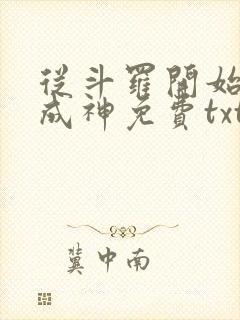 從斗羅開始
成神免費txt
冀中南